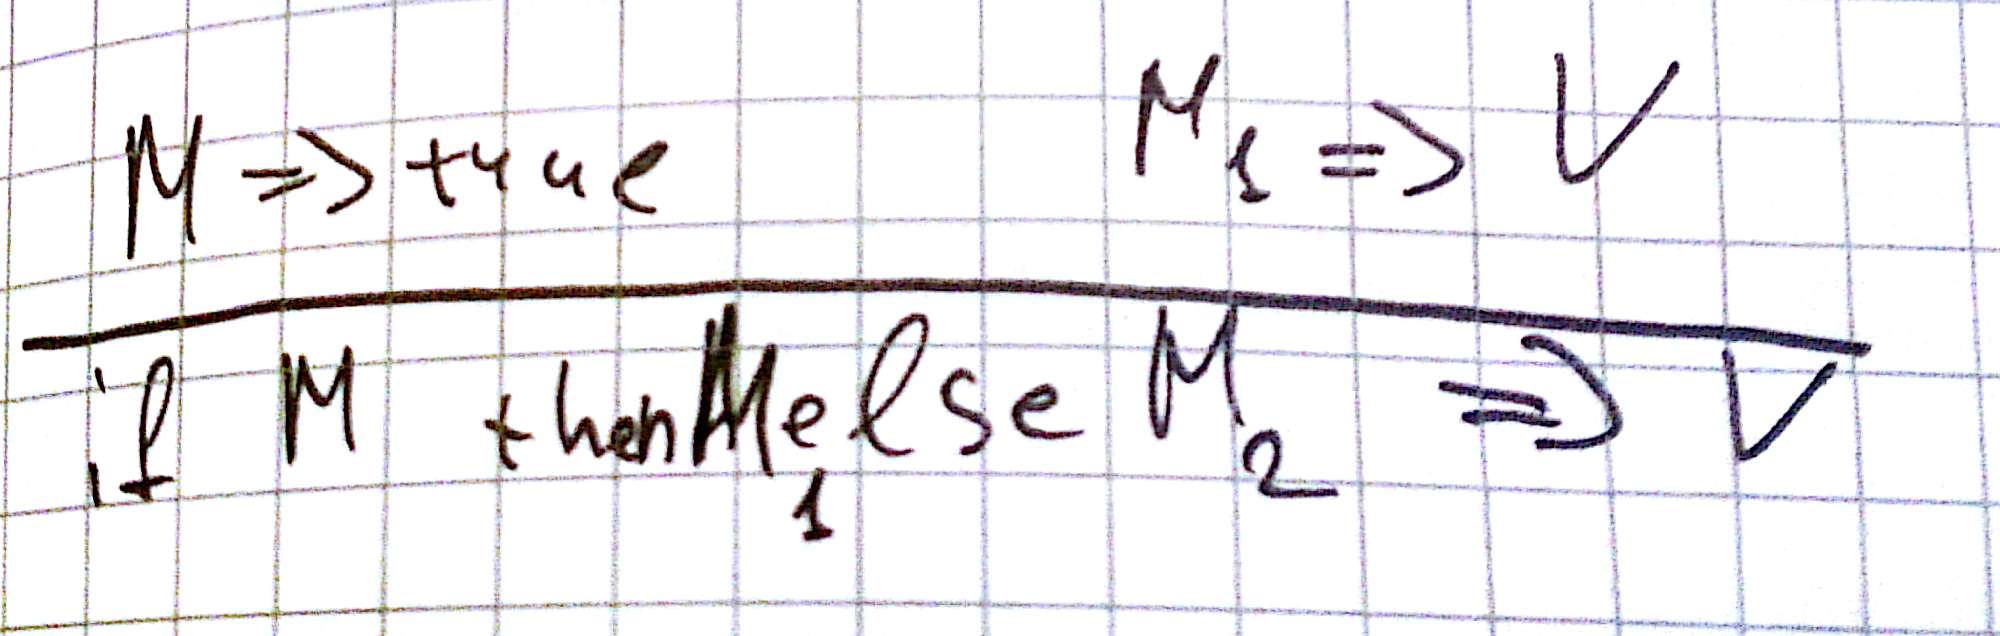 M => true M₁ => V
if M then M₁ else M₂ => V